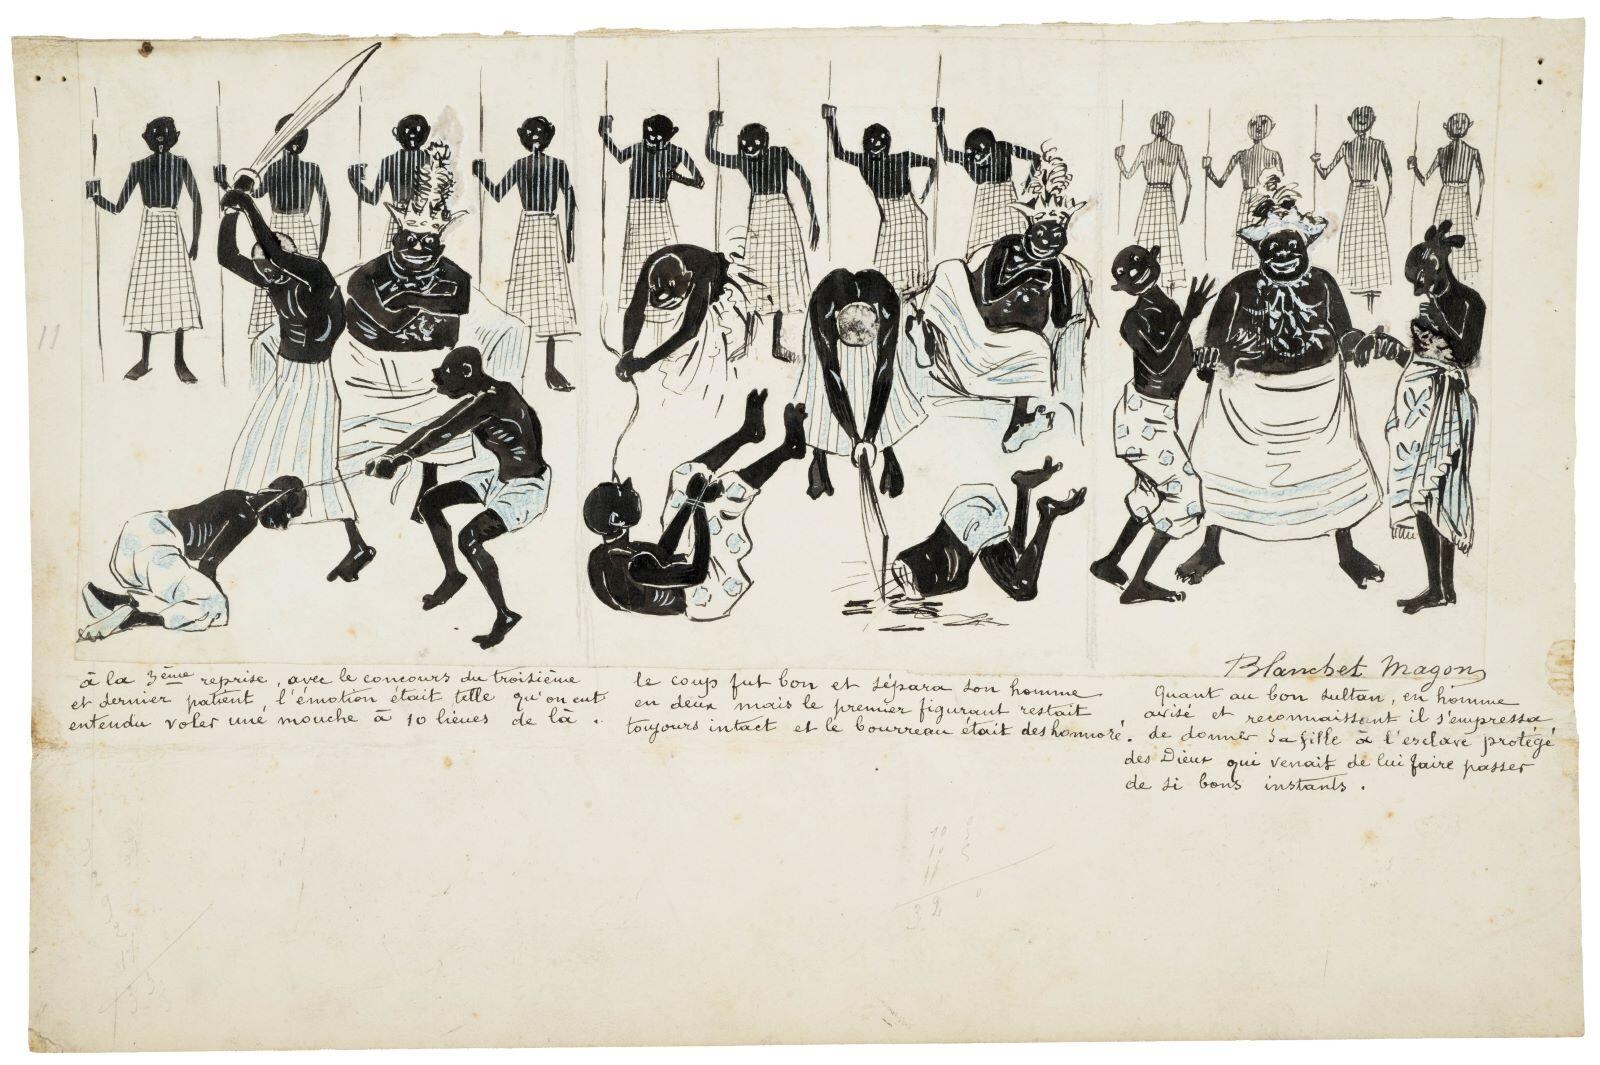 11
à la 3ème reprise, avec le concours du troisième
et dernier patient, l'émotion était telle qu'on eut
entendu voler une mouche à 10 lieues de là.
le coup fut bon et sépara son homme
en deux mais le premier figurant restait
toujours intact et le bourreau était deshonnoré.
Blanchet Magon
Quant au bon sultan, en homme
avisé et reconnaissant il s'empressa
de donner sa fille à l'esclave protégé
des Dieux qui venait de lui faire passer
de si bons instants.
10
10
11
32